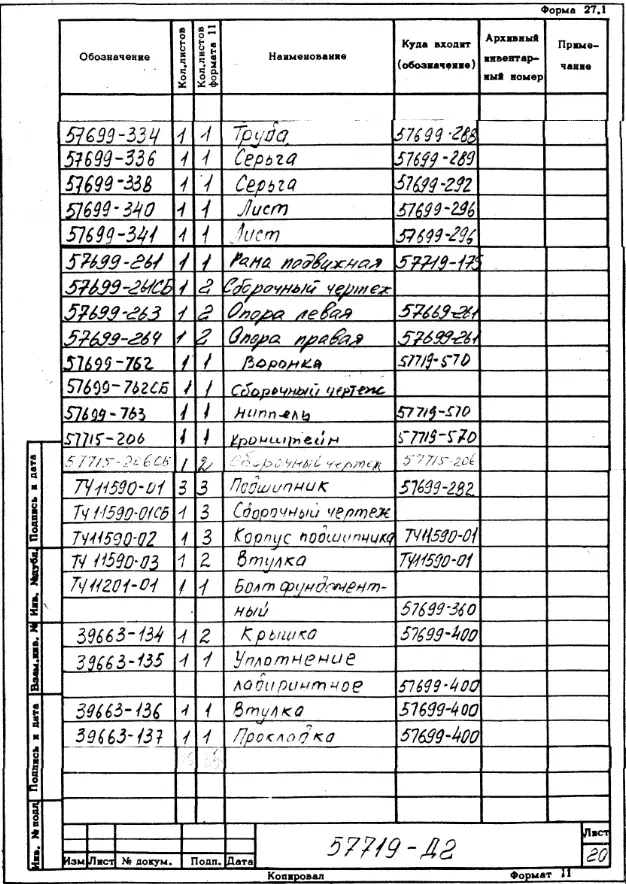 Форма 27.1
Обозначение Кол.листов Кол.листов формата 11 Наименование Куда входит (обозначение) Архивный инвентарный номер Примечание
57699-334 1 1 Труба 57699-288
57699-336 1 1 Серьга 57699-289
57699-338 1 1 Серьга 57699-292
57699-340 1 1 Лист 57699-296
57699-341 1 1 Лист 57699-296
57699-261 1 1 Рама подвижная 57719-175
57699-261СБ 1 2 Сборочный чертеж
57699-263 1 2 Опора левая 57669-261
57699-264 1 2 Опора правая 57699-261
57699-762 1 1 Воронка 57719-570
57699-762СБ 1 1 Сборочный чертеж
57699-763 1 1 Ниппель 57719-570
57715-206 1 1 Кронштейн 57719-570
57715-206СБ 1 2 Сборочный чертеж 57715-206
ТЧ11590-01 3 3 Подшипник 57699-282
ТЧ11590-01СБ 1 3 Сборочный чертеж
ТЧ11590-02 1 3 Корпус подшипника ТЧ11590-01
ТЧ11590-03 1 2 Втулка ТЧ11590-01
ТЧ11201-01 1 1 Болт фундамент-
ный 57699-360
39663-134 1 2 Крышка 57699-400
39663-135 1 1 Уплотнение
лабиринтное 57699-400
39663-136 1 1 Втулка 57699-400
39663-137 1 1 Прокладка 57699-400
Инв. № подл. Подпись и дата Взам.инв. № Инв. №дубл. Подпись и дата
57719-Д2
Лист
20
Изм Лист № докум. Подп. Дата
Копировал Формат 11